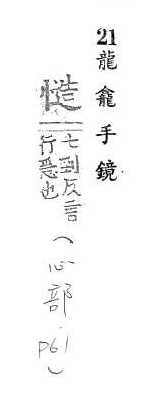 21龍龕手鏡
慥
七到反言
行急也
(心部 p61)